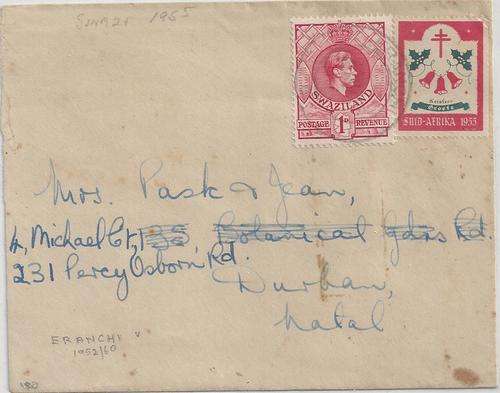 SWAZI 1955
SWAZILAND
POSTAGE 1D REVENUE
Kersfees
Groete
SUID-AFRIKA 1953
Mrs. Pask & Jean,
4, Michael Crt, 135, Botanical Gdns Rd.
231 Percy Osborn Rd.
Durban,
Natal
1952/60
180